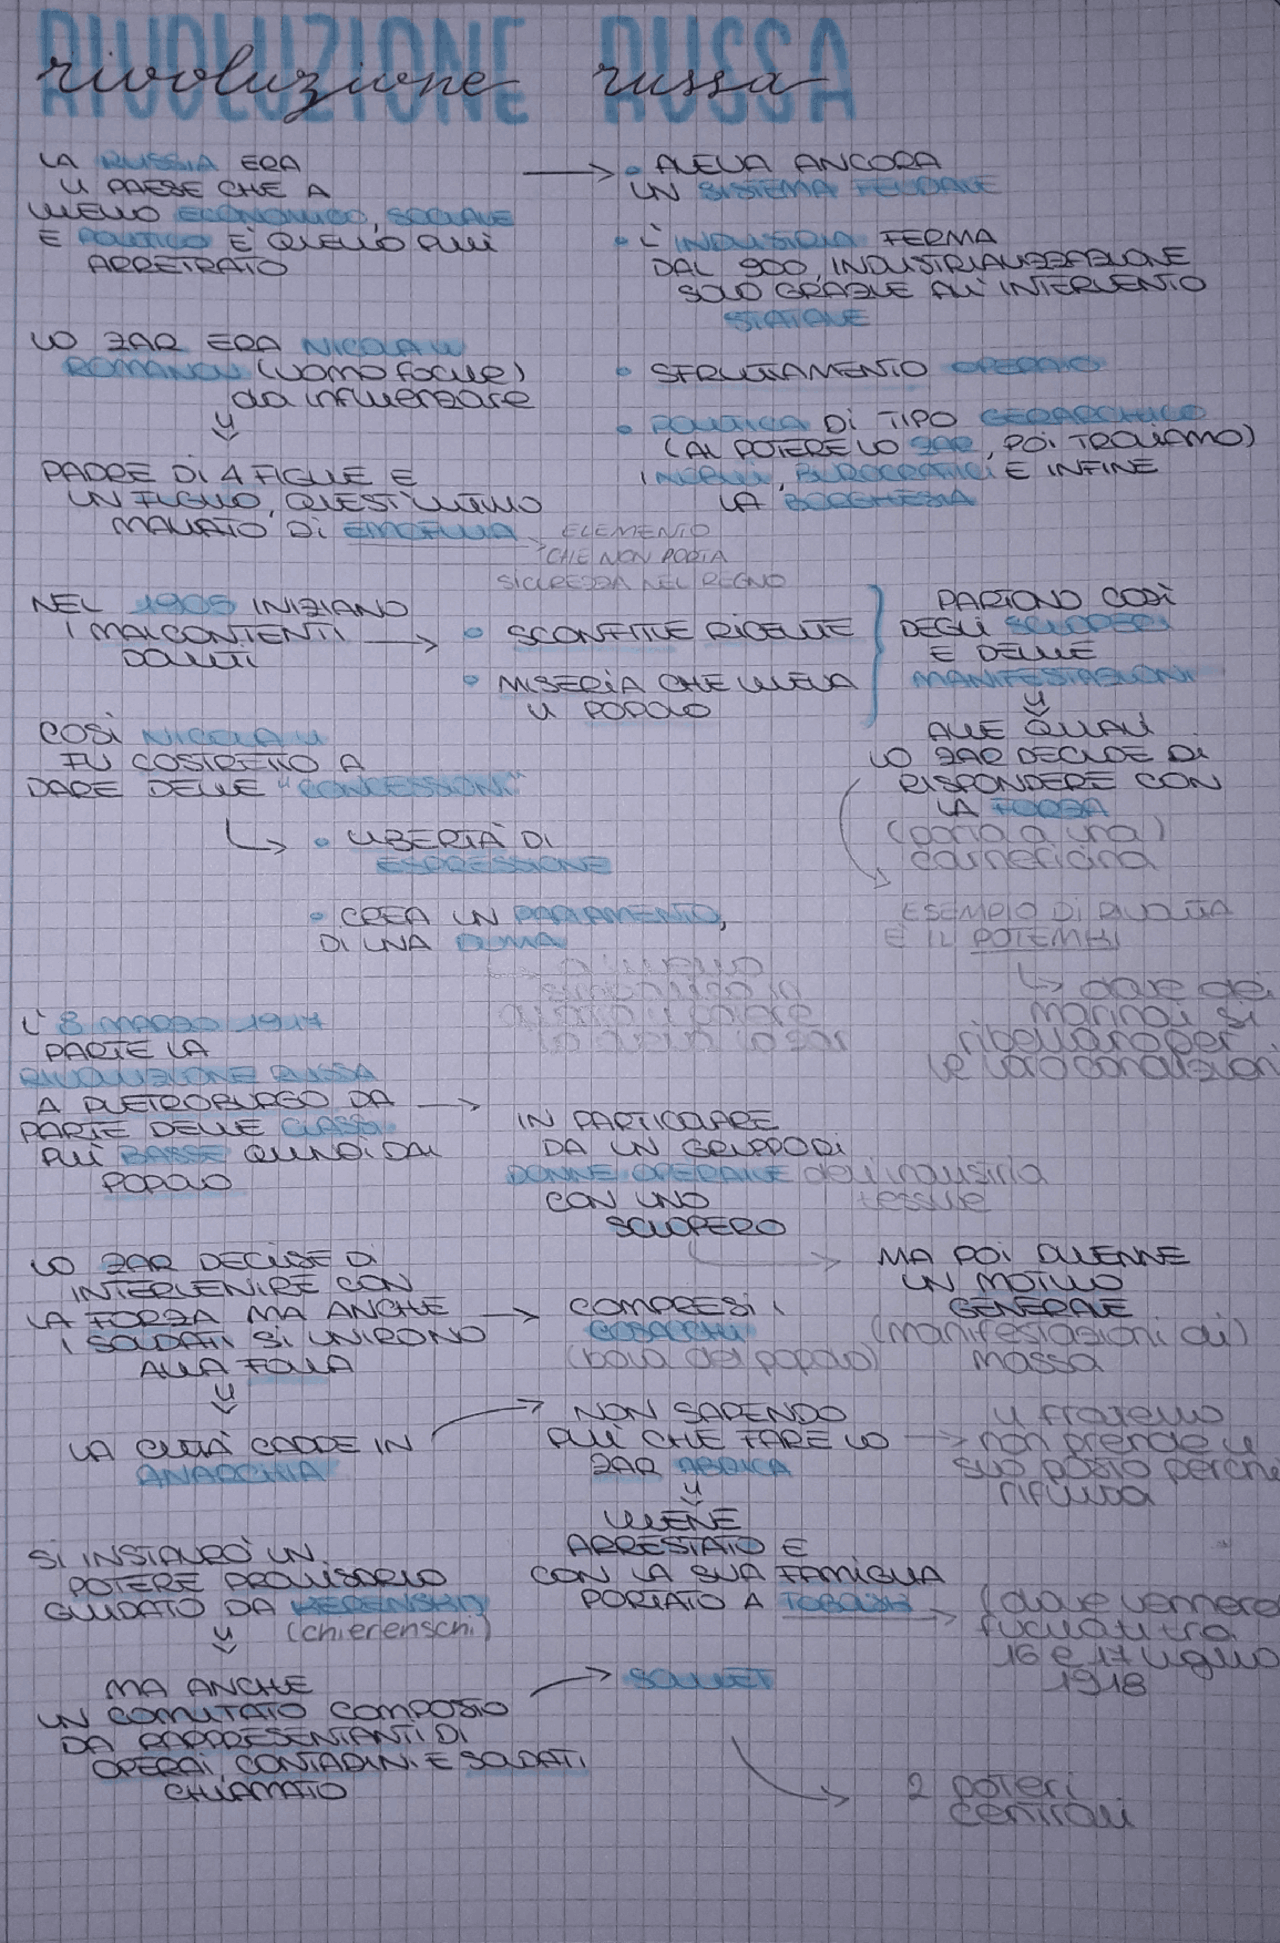 RIVOLUZIONE RUSSA
rivoluzione russa
LA RUSSIA ERA
IL PAESE CHE A
LIVELLO ECONOMICO, SOCIALE
E POLITICO È QUELLO PIÙ
ARRETRATO
• AVEVA ANCORA
UN SISTEMA FEUDALE
• L'INDUSTRIA FERMA
DAL 900, INDUSTRIALIZZAZIONE
SOLO GRAZIE ALL'INTERVENTO
STATALE
• SFRUTTAMENTO OPERAIO
• POLITICA DI TIPO GERARCHICO
(AL POTERE LO ZAR, POI TROVIAMO)
I NOBILI, BUROCRATICI E INFINE
LA BORGHESIA
LO ZAR ERA NICOLA II
ROMANOV (uomo facile)
da influenzare
PADRE DI 4 FIGLIE E
UN FIGLIO, QUEST'ULTIMO
MALATO DI EMOFILIA
ELEMENTO
CHE NON PORTA
SICUREZZA NEL REGNO
NEL 1905 INIZIANO
I MALCONTENTI
DOVUTI
• SCONFITTE RICEVUTE
• MISERIA CHE VIVEVA
IL POPOLO
PARTONO COSÌ
DEGLI SCIOPERI
E DELLE
MANIFESTAZIONI
ALLE QUALI
LO ZAR DECIDE DI
RISPONDERE CON
LA FORZA
(porta a una)
carneficina
ESEMPIO DI RIVOLTA
È IL POTEMKI
dove dei
marinai si
ribellano per
le loro condizioni
COSÌ NICOLA II
FU COSTRETTO A
DARE DELLE "CONCESSIONI"
• LIBERTÀ DI
ESPRESSIONE
• CREA UN PARLAMENTO,
DI UNA DUMA
a livello
simbolico in
quanto il potere
lo aveva lo zar
L'8 MARZO 1917
PARTE LA
RIVOLUZIONE RUSSA
A PIETROBURGO DA
PARTE DELLE CLASSI
PIÙ BASSE QUINDI DAL
POPOLO
IN PARTICOLARE
DA UN GRUPPO DI
DONNE OPERAIE dell'industria
CON UNO tessile
SCIOPERO
MA POI DIVENNE
UN MOTIVO
GENERALE
(manifestazioni di)
massa
LO ZAR DECISE DI
INTERVENIRE CON
LA FORZA MA ANCHE
I SOLDATI SI UNIRONO
ALLA FOLLA
COMPRESI I
COSACCHI
(boia del popolo)
LA CITTÀ CADDE IN
ANARCHIA
NON SAPENDO
PIÙ CHE FARE LO
ZAR ABDICA
il fratello
non prende il
suo posto perché
rifiuta
VIENE
ARRESTATO E
CON LA SUA FAMIGLIA
PORTATO A
(dove vennero
fucilati tra
16 e 17 luglio
1918
SI INSTAURÒ UN
POTERE PROVVISORIO
GUIDATO DA KERENSKIJ
(chierenschi)
MA ANCHE
UN COMITATO COMPOSTO
DA RAPPRESENTANTI DI
OPERAI, CONTADINI E SOLDATI
CHIAMATO
SOVIET
2 poteri
centrali